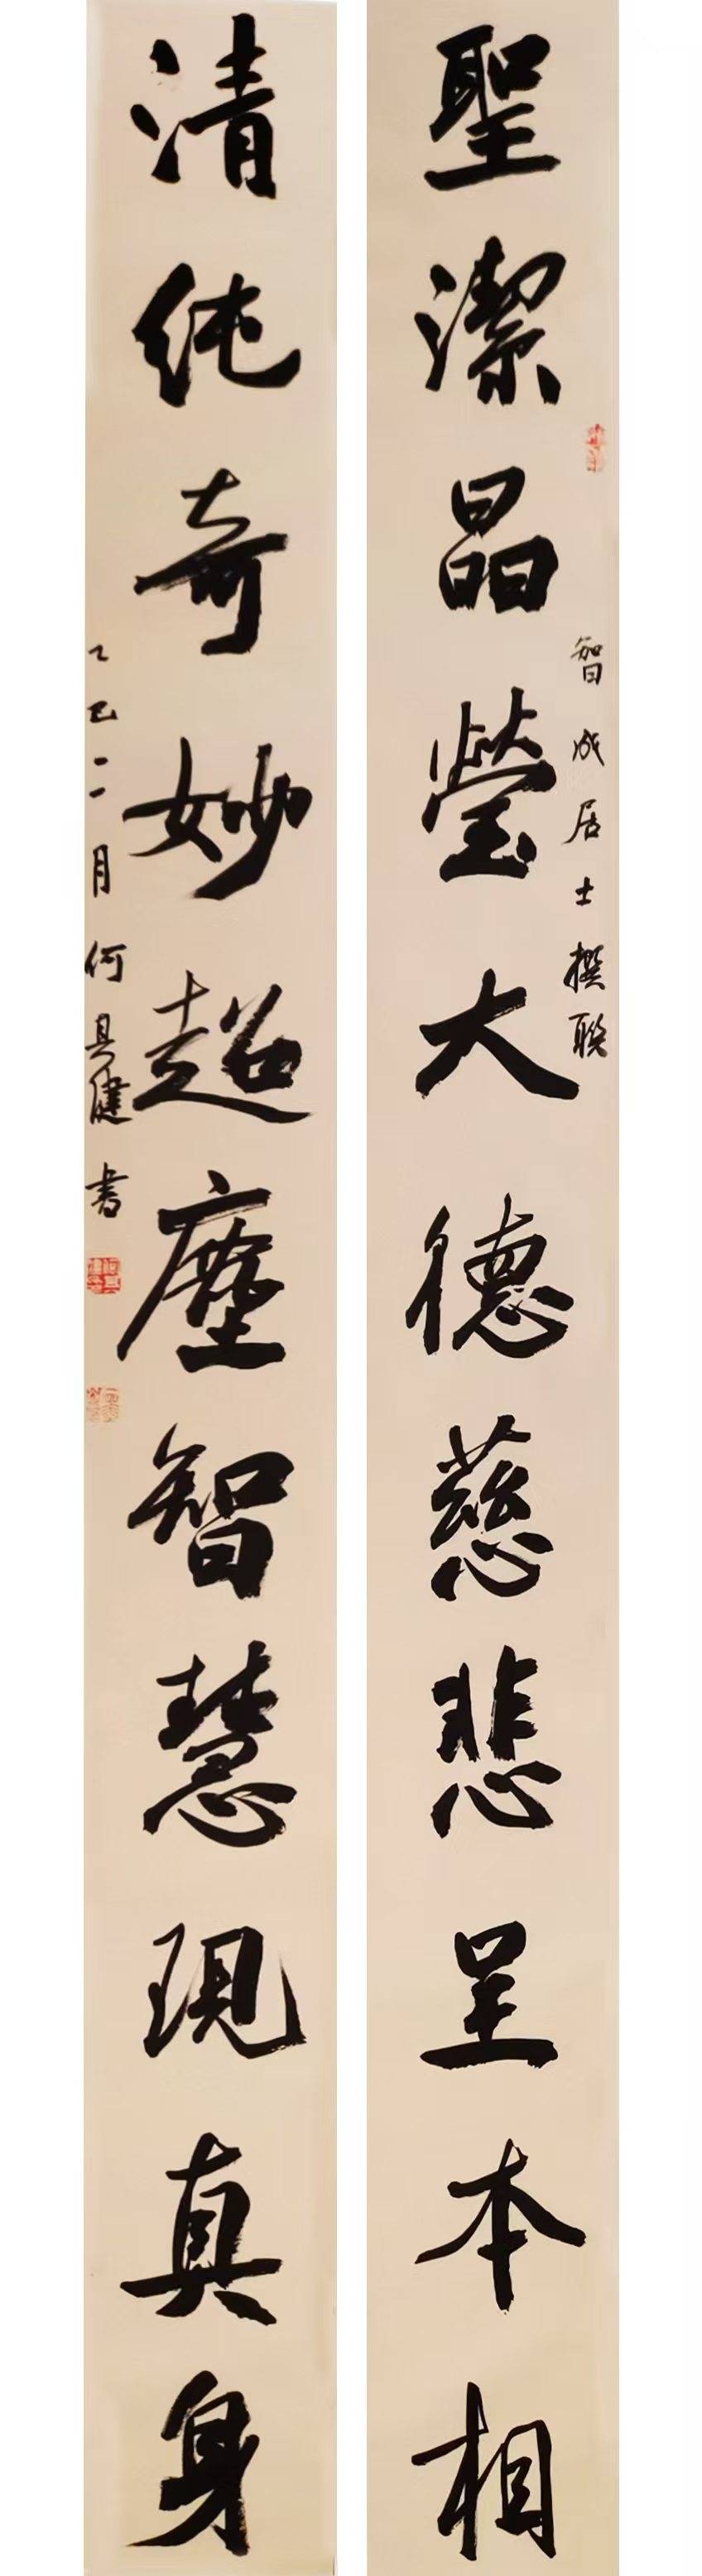 智成居士撰聯
聖潔晶瑩大德慈悲呈本相
清純奇妙超塵智慧現真身
乙巳二月何具健书